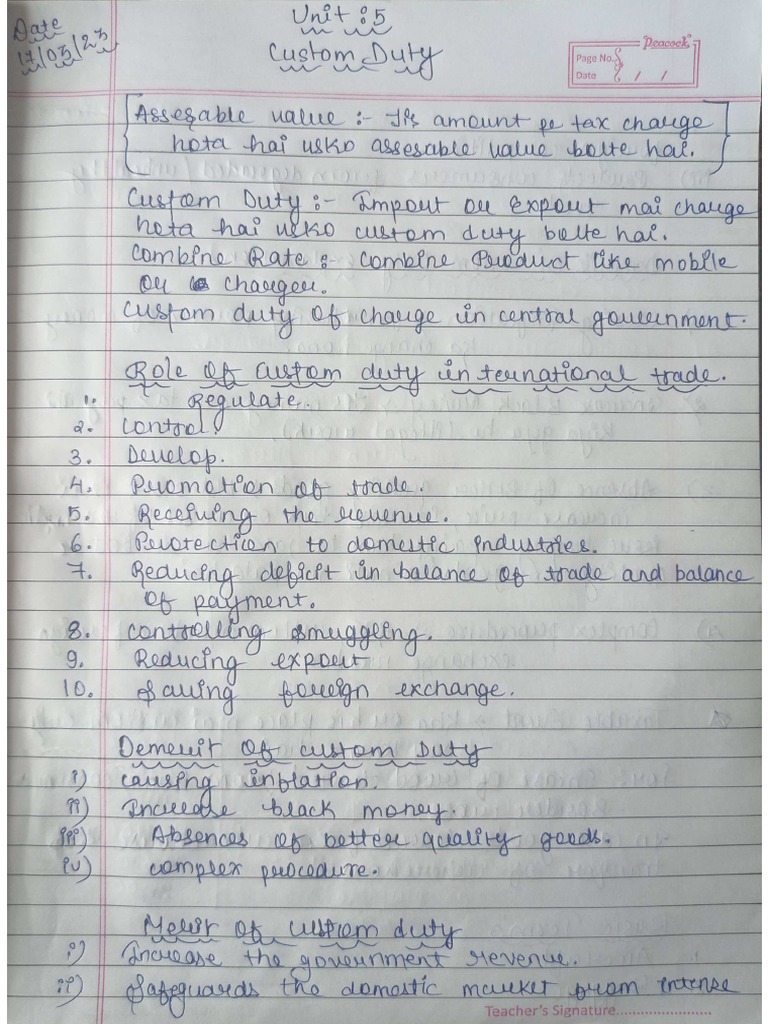 Date
17/05/23
Unit :5
Custom Duty
Peacock
Page No.
Date / /
Assesable value :- Jis amount pe tax charge
hota hai usko assesable value bolte hai.
Custom Duty :- Import or Export mai charge
hota hai usko custom duty bolte hai.
Combine Rate :- Combine Product like mobile
or charger.
Custom duty of charge in central government.
Role of custom duty international trade.
1. Regulate.
2. Control.
3. Develop.
4. Promotion of trade.
5. Receiving the revenue.
6. Perotection to domestic industries.
7. Reducing deficit in balance of trade and balance
of payment.
8. Controlling smuggling.
9. Reducing export
10. Saving foreign exchange.
Demerit of custom Duty
i) Causing inflation.
ii) Increase black money.
iii) Absences of better quality goods.
iv) complex procedure.
Merit of custom duty
i) Increase the government revenue.
ii) Safeguards the domastic market from intense
Teacher's Signature........................